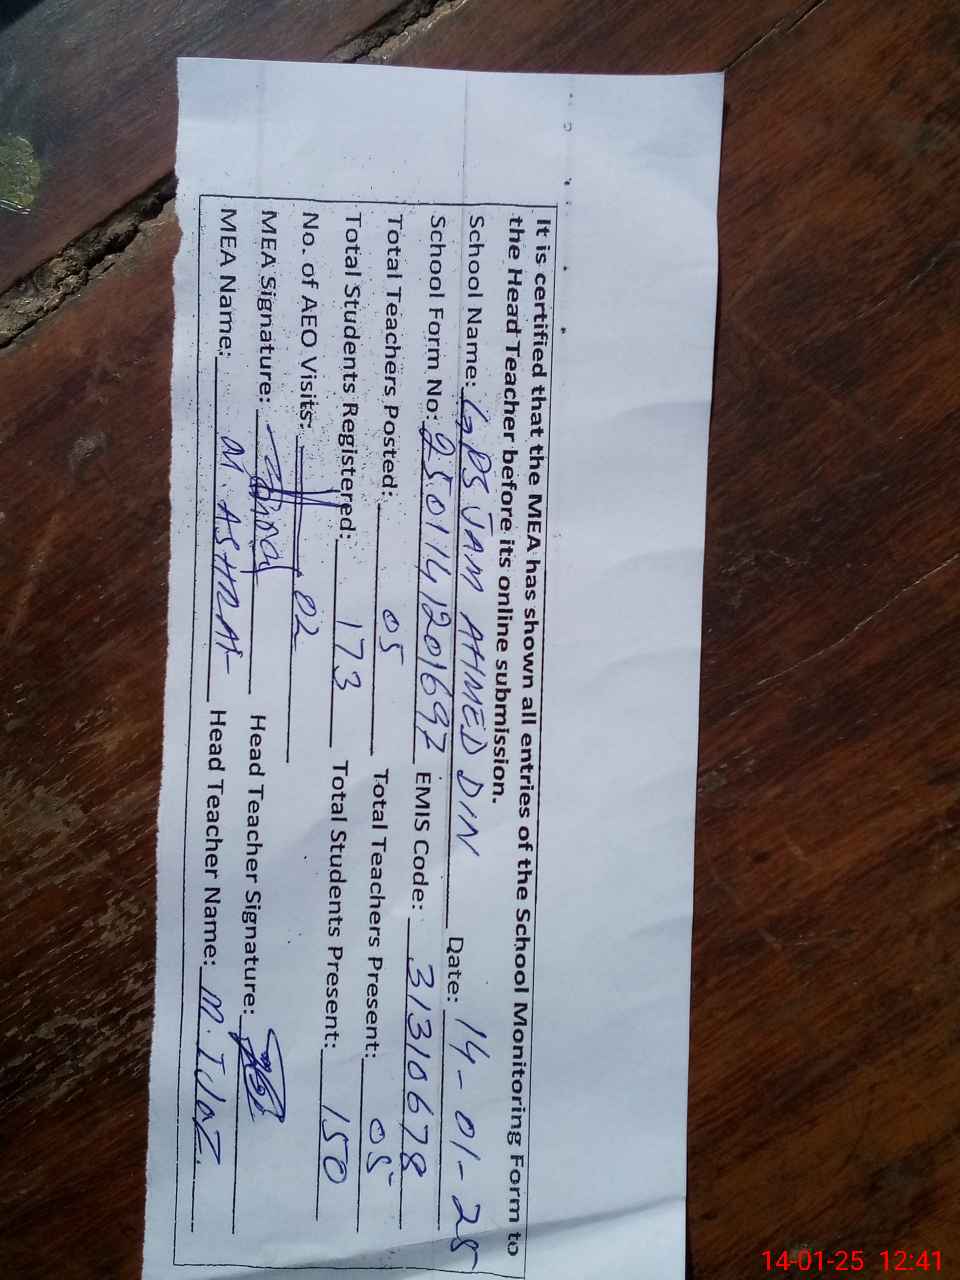 It is certified that the MEA has shown all entries of the School Monitoring Form to
the Head Teacher before its online submission.
School Name: GPS JAM AHMED DIN Date: 14-01-25
School Form No: 2501141201697 EMIS Code: 31310678
Total Teachers Posted: 05 Total Teachers Present: 05
Total Students Registered: 173 Total Students Present: 150
No. of AEO Visits: 02
MEA Signature: Head Teacher Signature:
MEA Name: M. ASHRAF Head Teacher Name: M. IJaZ.
14-01-25 12:41